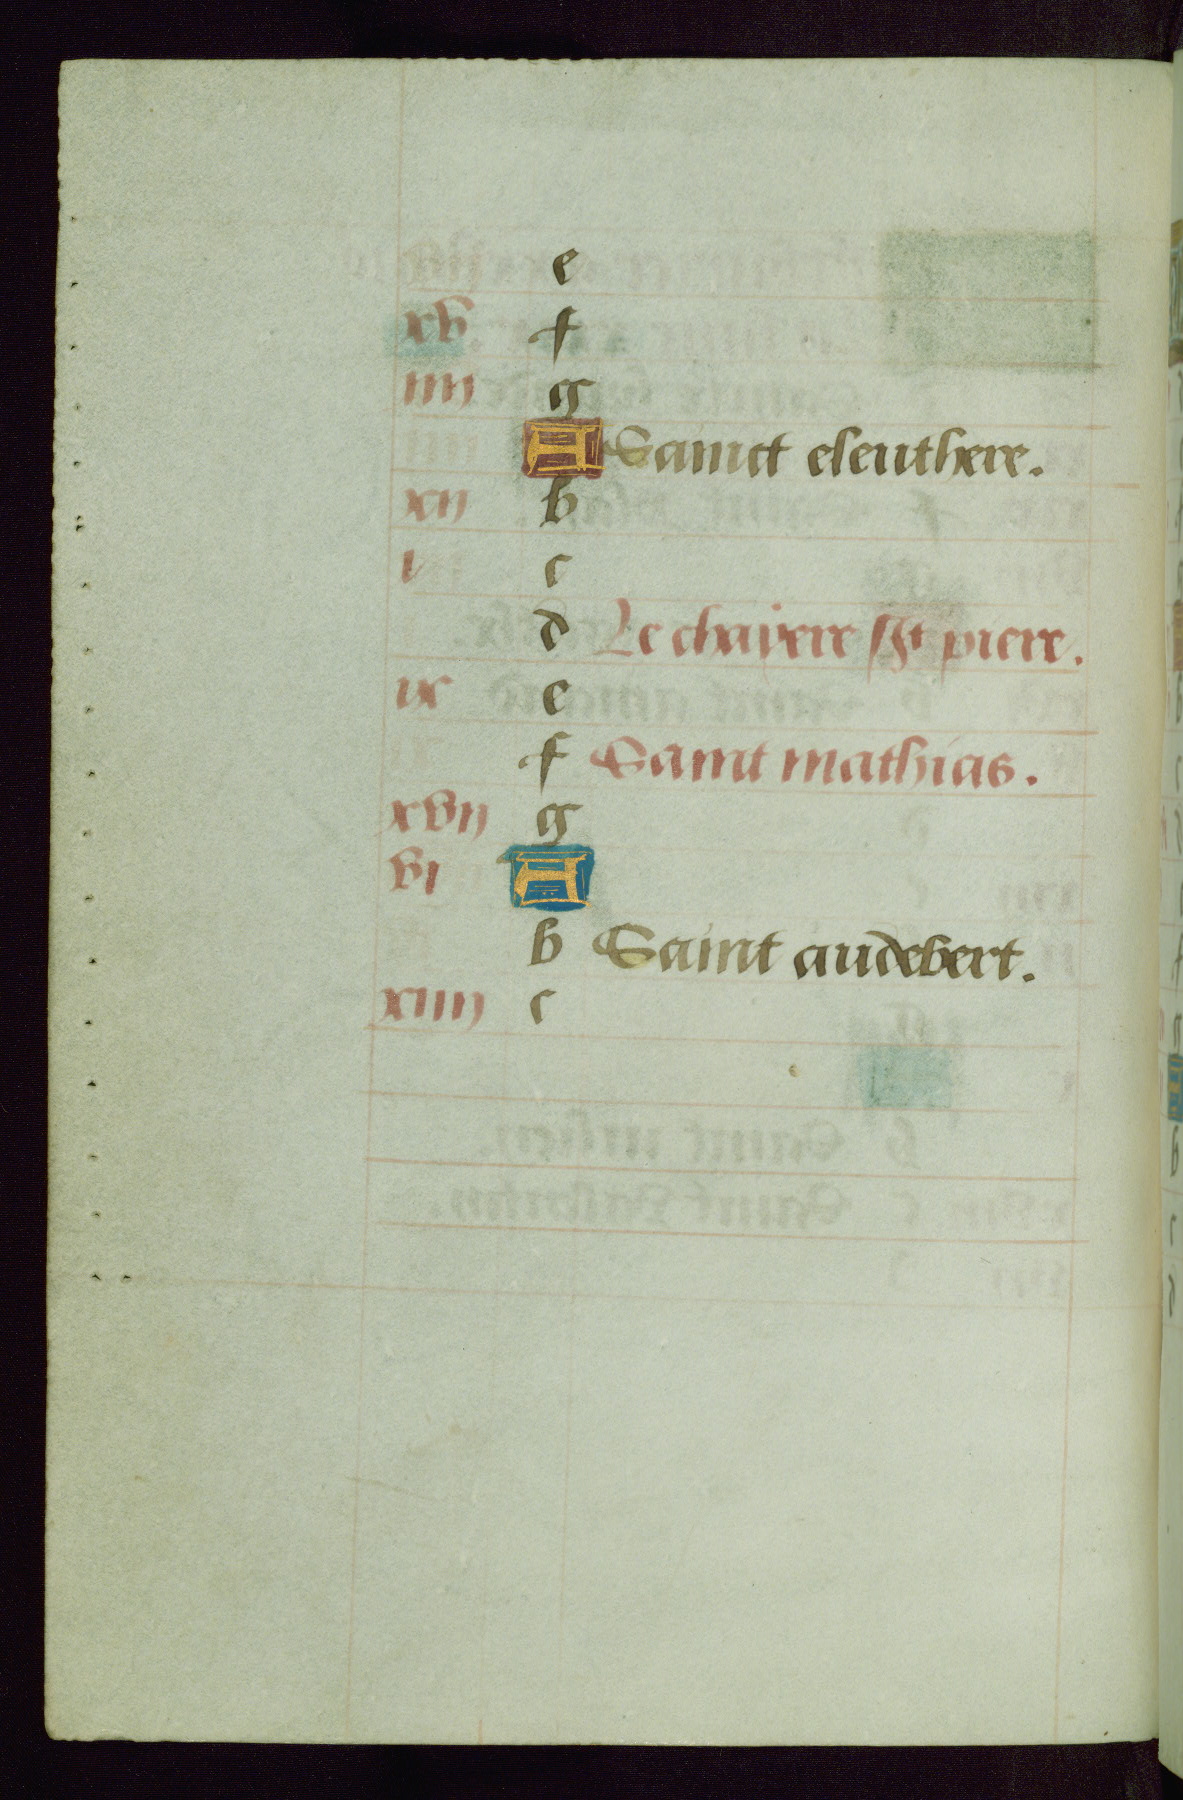 e
xv f
iiij g
A Sainct eleuthere.
xij b
i c
d Le chayere st piere.
ix e
f Saint mathias.
xvij g
vi A
b Saint audebert.
xiiij c